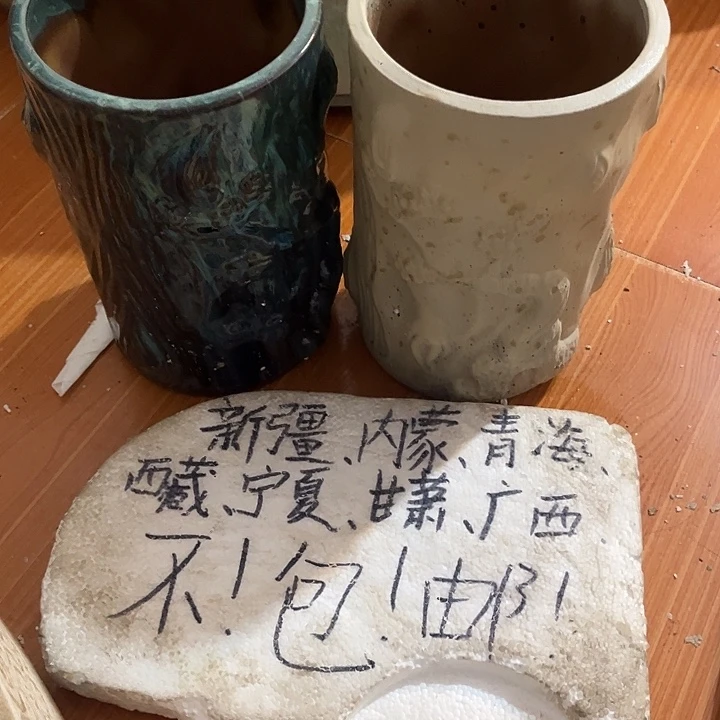 新疆、内蒙、青海、
西藏、宁夏、甘肃、广西
不！包！邮！